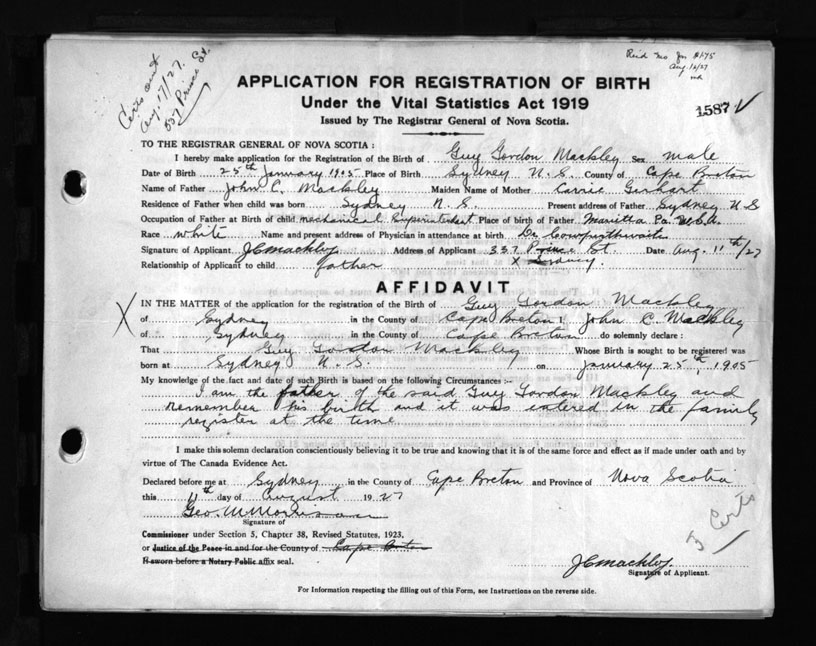 Certs sent
Aug. 17/27.
337 Prince St.
Aug. 16/27
1587 √
APPLICATION FOR REGISTRATION OF BIRTH
Under the Vital Statistics Act 1919
Issued by The Registrar General of Nova Scotia.
TO THE REGISTRAR GENERAL OF NOVA SCOTIA :
I hereby make application for the Registration of the Birth of Guy Gordon Mackley Sex male
Date of Birth 25th January 1905 Place of Birth Sydney N. S. County of Cape Breton
Name of Father John C. Mackley Maiden Name of Mother Carrie Gerhart
Residence of Father when child was born Sydney N. S. Present address of Father Sydney N S
Occupation of Father at Birth of child mechanical Superintendant Place of birth of Father Marietta Pa. U.S.A.
Race white Name and present address of Physician in attendance at birth Dr. Cowperthwaite
Signature of Applicant J C Mackley Address of Applicant 337 Prince St. Date Aug. 11th/27
Relationship of Applicant to child father X Sydney.
AFFIDAVIT
X IN THE MATTER of the application for the registration of Birth of Guy Gordon Mackley
of Sydney in the County of Cape Breton I John C Mackley
of Sydney in the County of Cape Breton do solemnly declare :
That Guy Gordon Mackley Whose Birth is sought to be registered was
born at Sydney N. S. on January 25th, 1905
My knowledge of the fact and date of such Birth is based on the following Circumstances :-
I am the father of the said Guy Gordon Mackley and
remember his birth and it was entered in the family
register at the time
I make this solemn declaration conscientiously believing it to be true and knowing that it is of the same force and effect as if made under oath and by
virtue of The Canada Evidence Act.
Declared before me at Sydney in the County of Cape Breton and Province of Nova Scotia
this 11th day of August 1927
Geo. M Morrison
Signature of
Commissioner under Section 5, Chapter 38, Revised Statutes, 1923,
or Justice of the Peace in and for the County of Cape Breton
If sworn before a Notary Public affix seal.
3 Certs
J C Mackley.
Signature of Applicant.
For Information respecting the filling out of this Form, see Instructions on the reverse side.